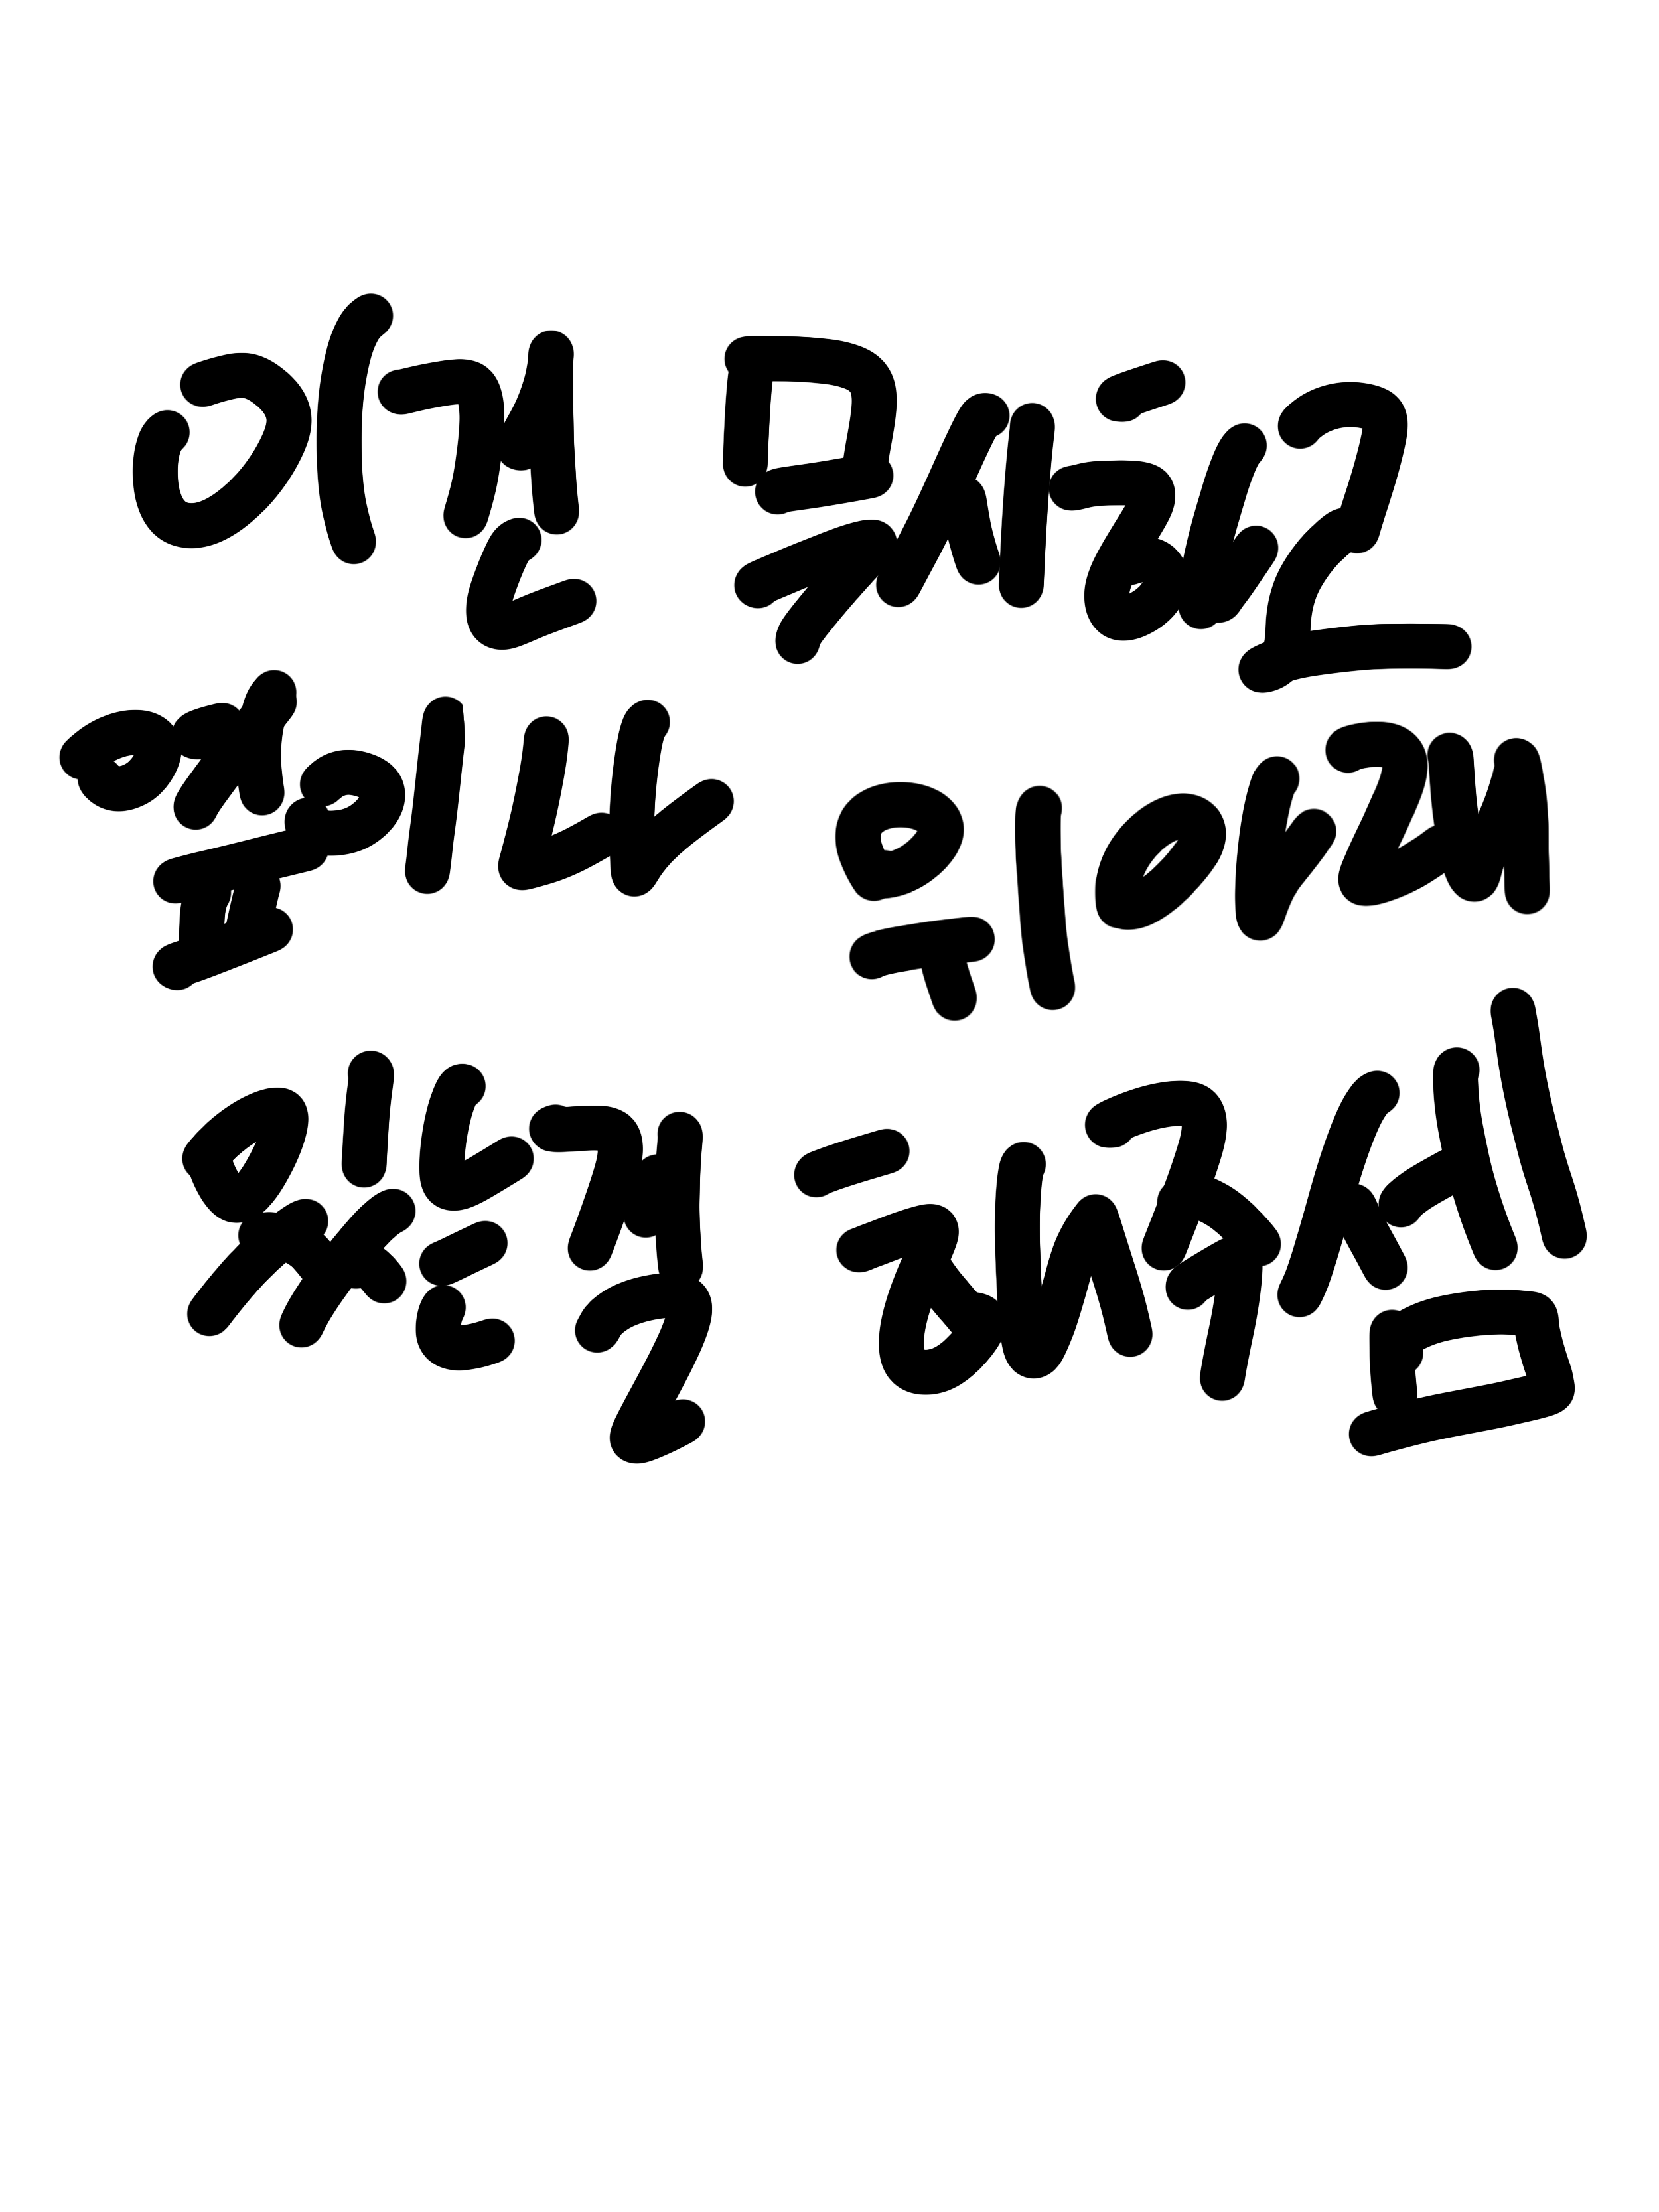 이건 무시하고
옆이나 위아래
있는걸 해주셈